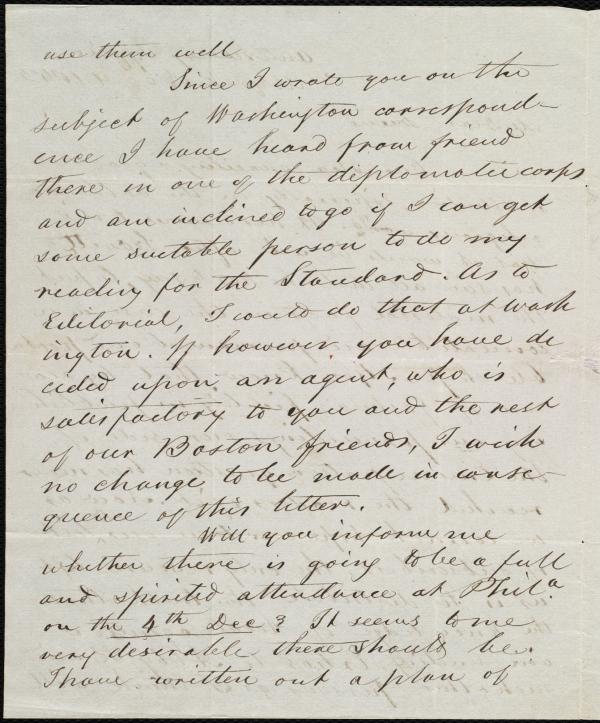 use them well
Since I wrote you on the
subject of Washington correspond-
ence I have heard from friend
there in one of the diplomatic corps
and am inclined to go if I can get
some suitable person to do my
reading for the Standard. As to
Editorial, I could do that at Wash
ington. If however you have de
cided upon an agent, who is
satisfactory to you and the rest
of our Boston friends, I wish
no change to be made in conse-
quence of this letter.
Will you inform me
whether there is going to be a full
and spirited attendance at Phila.
on the 4th Dec? It seems to me
very desirable there should be.
I have written out a plan of